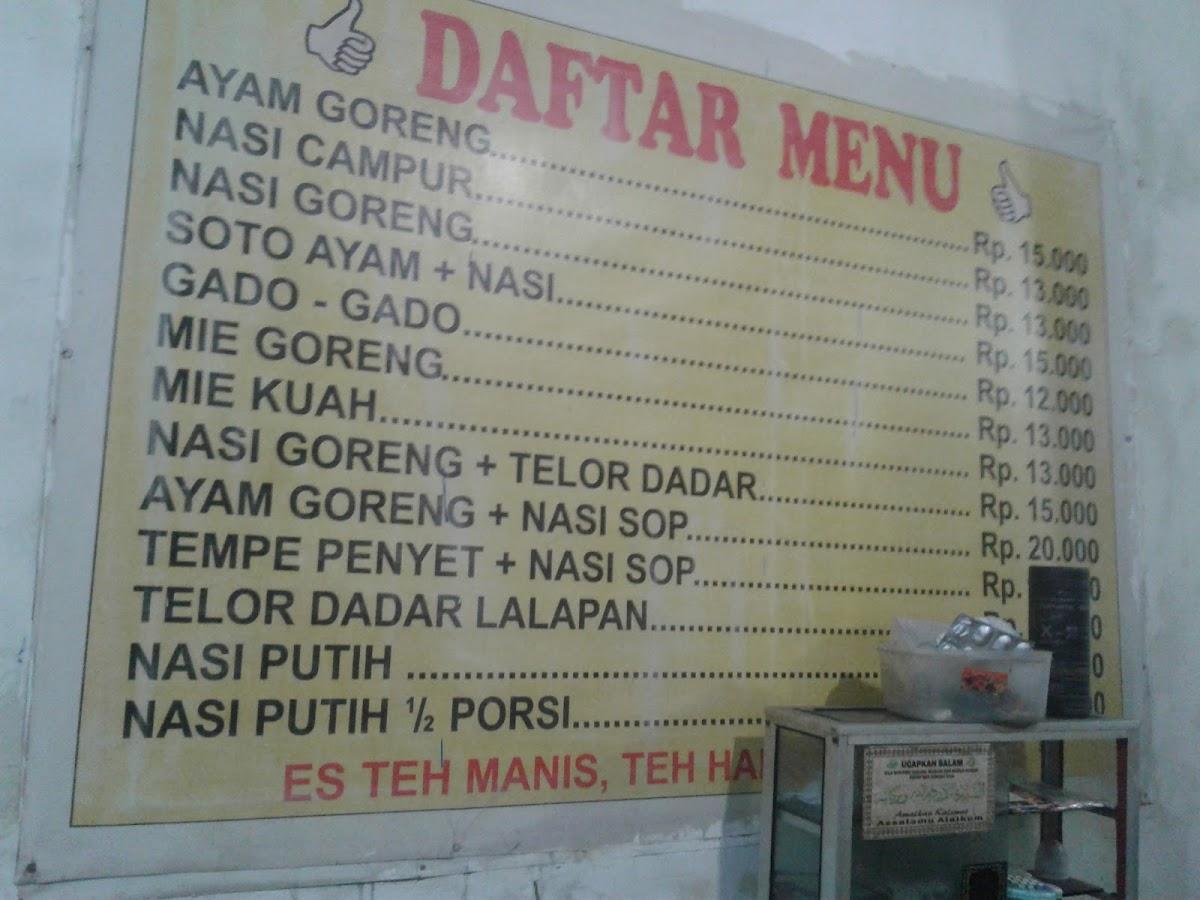 DAFTAR MENU
AYAM GORENG........................ Rp. 15.000
NASI CAMPUR........................ Rp. 13.000
NASI GORENG........................ Rp. 13.000
SOTO AYAM + NASI........................ Rp. 15.000
GADO - GADO........................ Rp. 12.000
MIE GORENG........................ Rp. 13.000
MIE KUAH........................ Rp. 13.000
NASI GORENG + TELOR DADAR........................ Rp. 15.000
AYAM GORENG + NASI SOP........................ Rp. 20.000
TEMPE PENYET + NASI SOP........................ Rp.
TELOR DADAR LALAPAN........................
NASI PUTIH ........................
NASI PUTIH ½ PORSI........................
ES TEH MANIS, TEH
UCAPKAN SALAM
Assalamu Alaikum